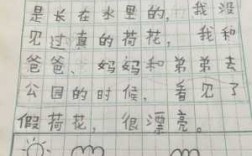 是长在水里的，我没
见过真的荷花，我和
爸爸、妈妈和弟弟去
公园的时候，看见了
假荷花，很漂亮。